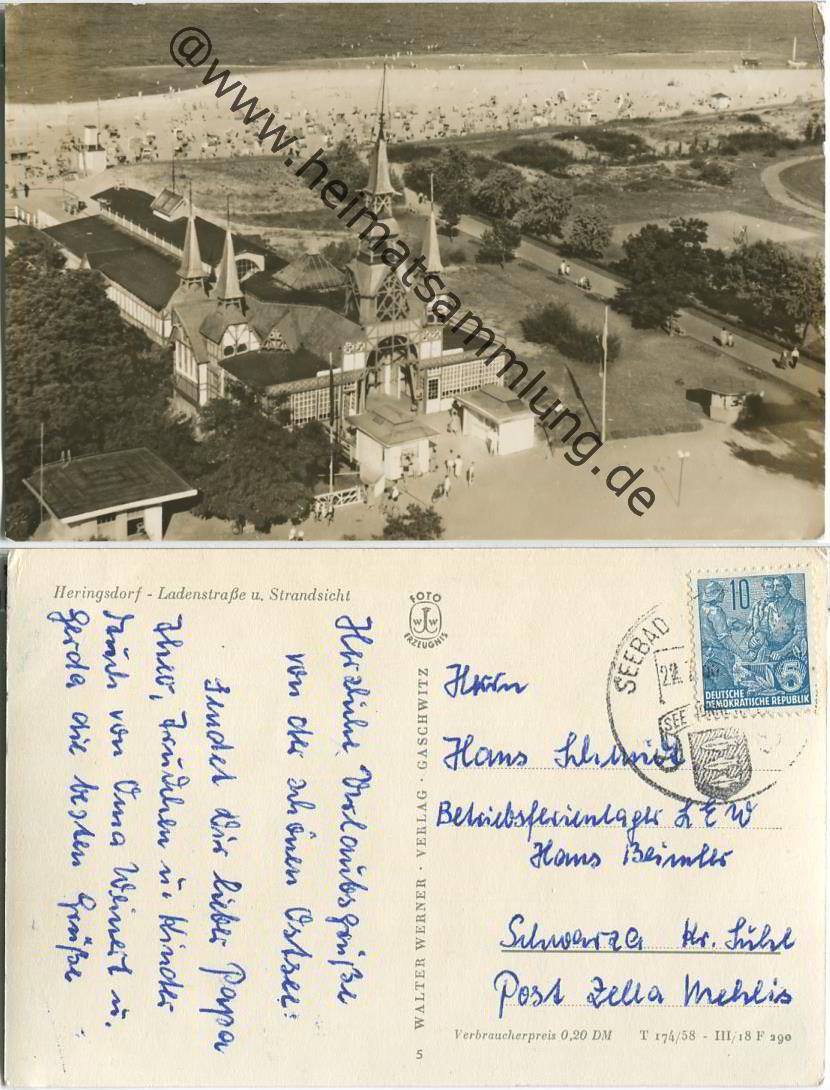 @www.heimatsammlung.de
Heringsdorf - Ladenstraße u. Strandsicht
Herzliche Urlaubsgrüße
von der schönen Ostsee!
sendet Dir lieber Papa
Traudchen u. Kinder
Auch von Oma Weinert u.
Gerda die besten Grüße
FOTO
WW
ERZEUGNIS
WALTER WERNER · VERLAG · GASCHWITZ
5
SEEBAD
SEE
10
5
DEUTSCHE
DEMOKRATISCHE REPUBLIK
Herrn
Hans Schmidt
Betriebsferienlager LEW
Hans Beimler
Schwarza Kr. Suhl
Post Zella Mehlis
Verbraucherpreis 0,20 DM T 174/58 - III/18 F 290